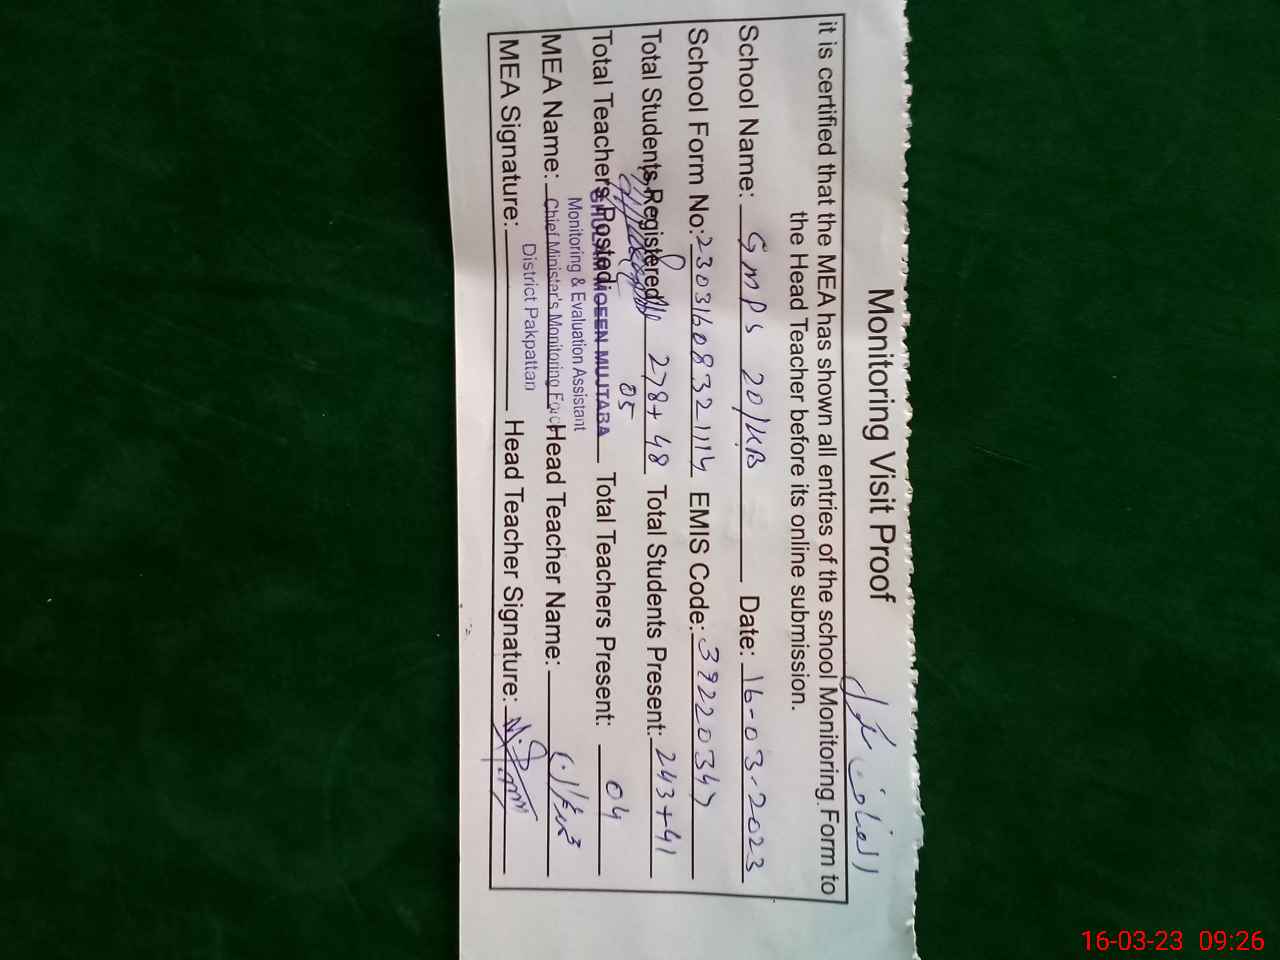 Monitoring Visit Proof
it is certified that the MEA has shown all entries of the school Monitoring Form to
the Head Teacher before its online submission.
School Name: GMPS 20/KB Date: 16-03-2023
School Form No: 23031608321114 EMIS Code: 39220347
Total Students Registered 278+48 Total Students Present: 243+41
Total Teachers Posted: 05 Total Teachers Present: 04
GHULAM MOEEN MUJTABA
Monitoring & Evaluation Assistant
MEA Name: Chief Minister's Monitoring Force Head Teacher Name:
District Pakpattan
MEA Signature: Head Teacher Signature:
16-03-23 09:26